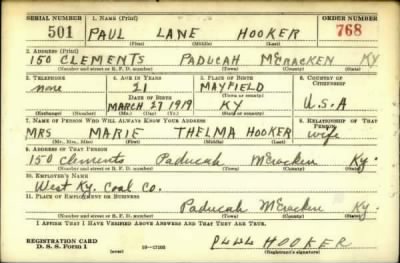 SERIAL NUMBER 1. NAME (Print) ORDER NUMBER
501 PAUL LANE HOOKER 768
(First) (Middle) (Last)
2. ADDRESS (Print)
150 CLEMENTS PADUCAH McCRACKEN KY
(Number and street or R. F. D. number) (Town) (County) (State)
3. TELEPHONE 4. AGE IN YEARS 5. PLACE OF BIRTH 6. COUNTRY OF CITIZENSHIP
none 21 MAYFIELD
DATE OF BIRTH (Town or county)
MARCH 27 1919 KY U.S.A
(Exchange) (Number) (Mo.) (Day) (Yr.) (State or country)
7. NAME OF PERSON WHO WILL ALWAYS KNOW YOUR ADDRESS 8. RELATIONSHIP OF THAT PERSON
MRS MARIE THELMA HOOKER wife
(Mr., Mrs., Miss) (First) (Middle) (Last)
9. ADDRESS OF THAT PERSON
150 Clements Paducah McCracken Ky.
(Number and street or R. F. D. number) (Town) (County) (State)
10. EMPLOYER'S NAME
West Ky. Coal Co.
11. PLACE OF EMPLOYMENT OR BUSINESS
Paducah McCracken Ky
(Number and street or R. F. D. number) (Town) (County) (State)
I AFFIRM THAT I HAVE VERIFIED ABOVE ANSWERS AND THAT THEY ARE TRUE.
REGISTRATION CARD
D. S. S. Form 1 (over) HOOKER
(Registrant's signature)